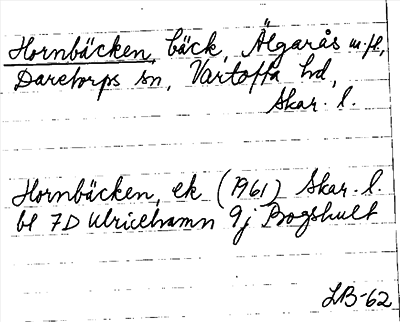 Hornbäcken, bäck, Älgarås m.fl.,
Daretorps sn, Vartofta hd,
Skar. l.
Hornbäcken, ek (1961) Skar. l.
bl 7D Ulricehamn 9j Bogshult
LB-62